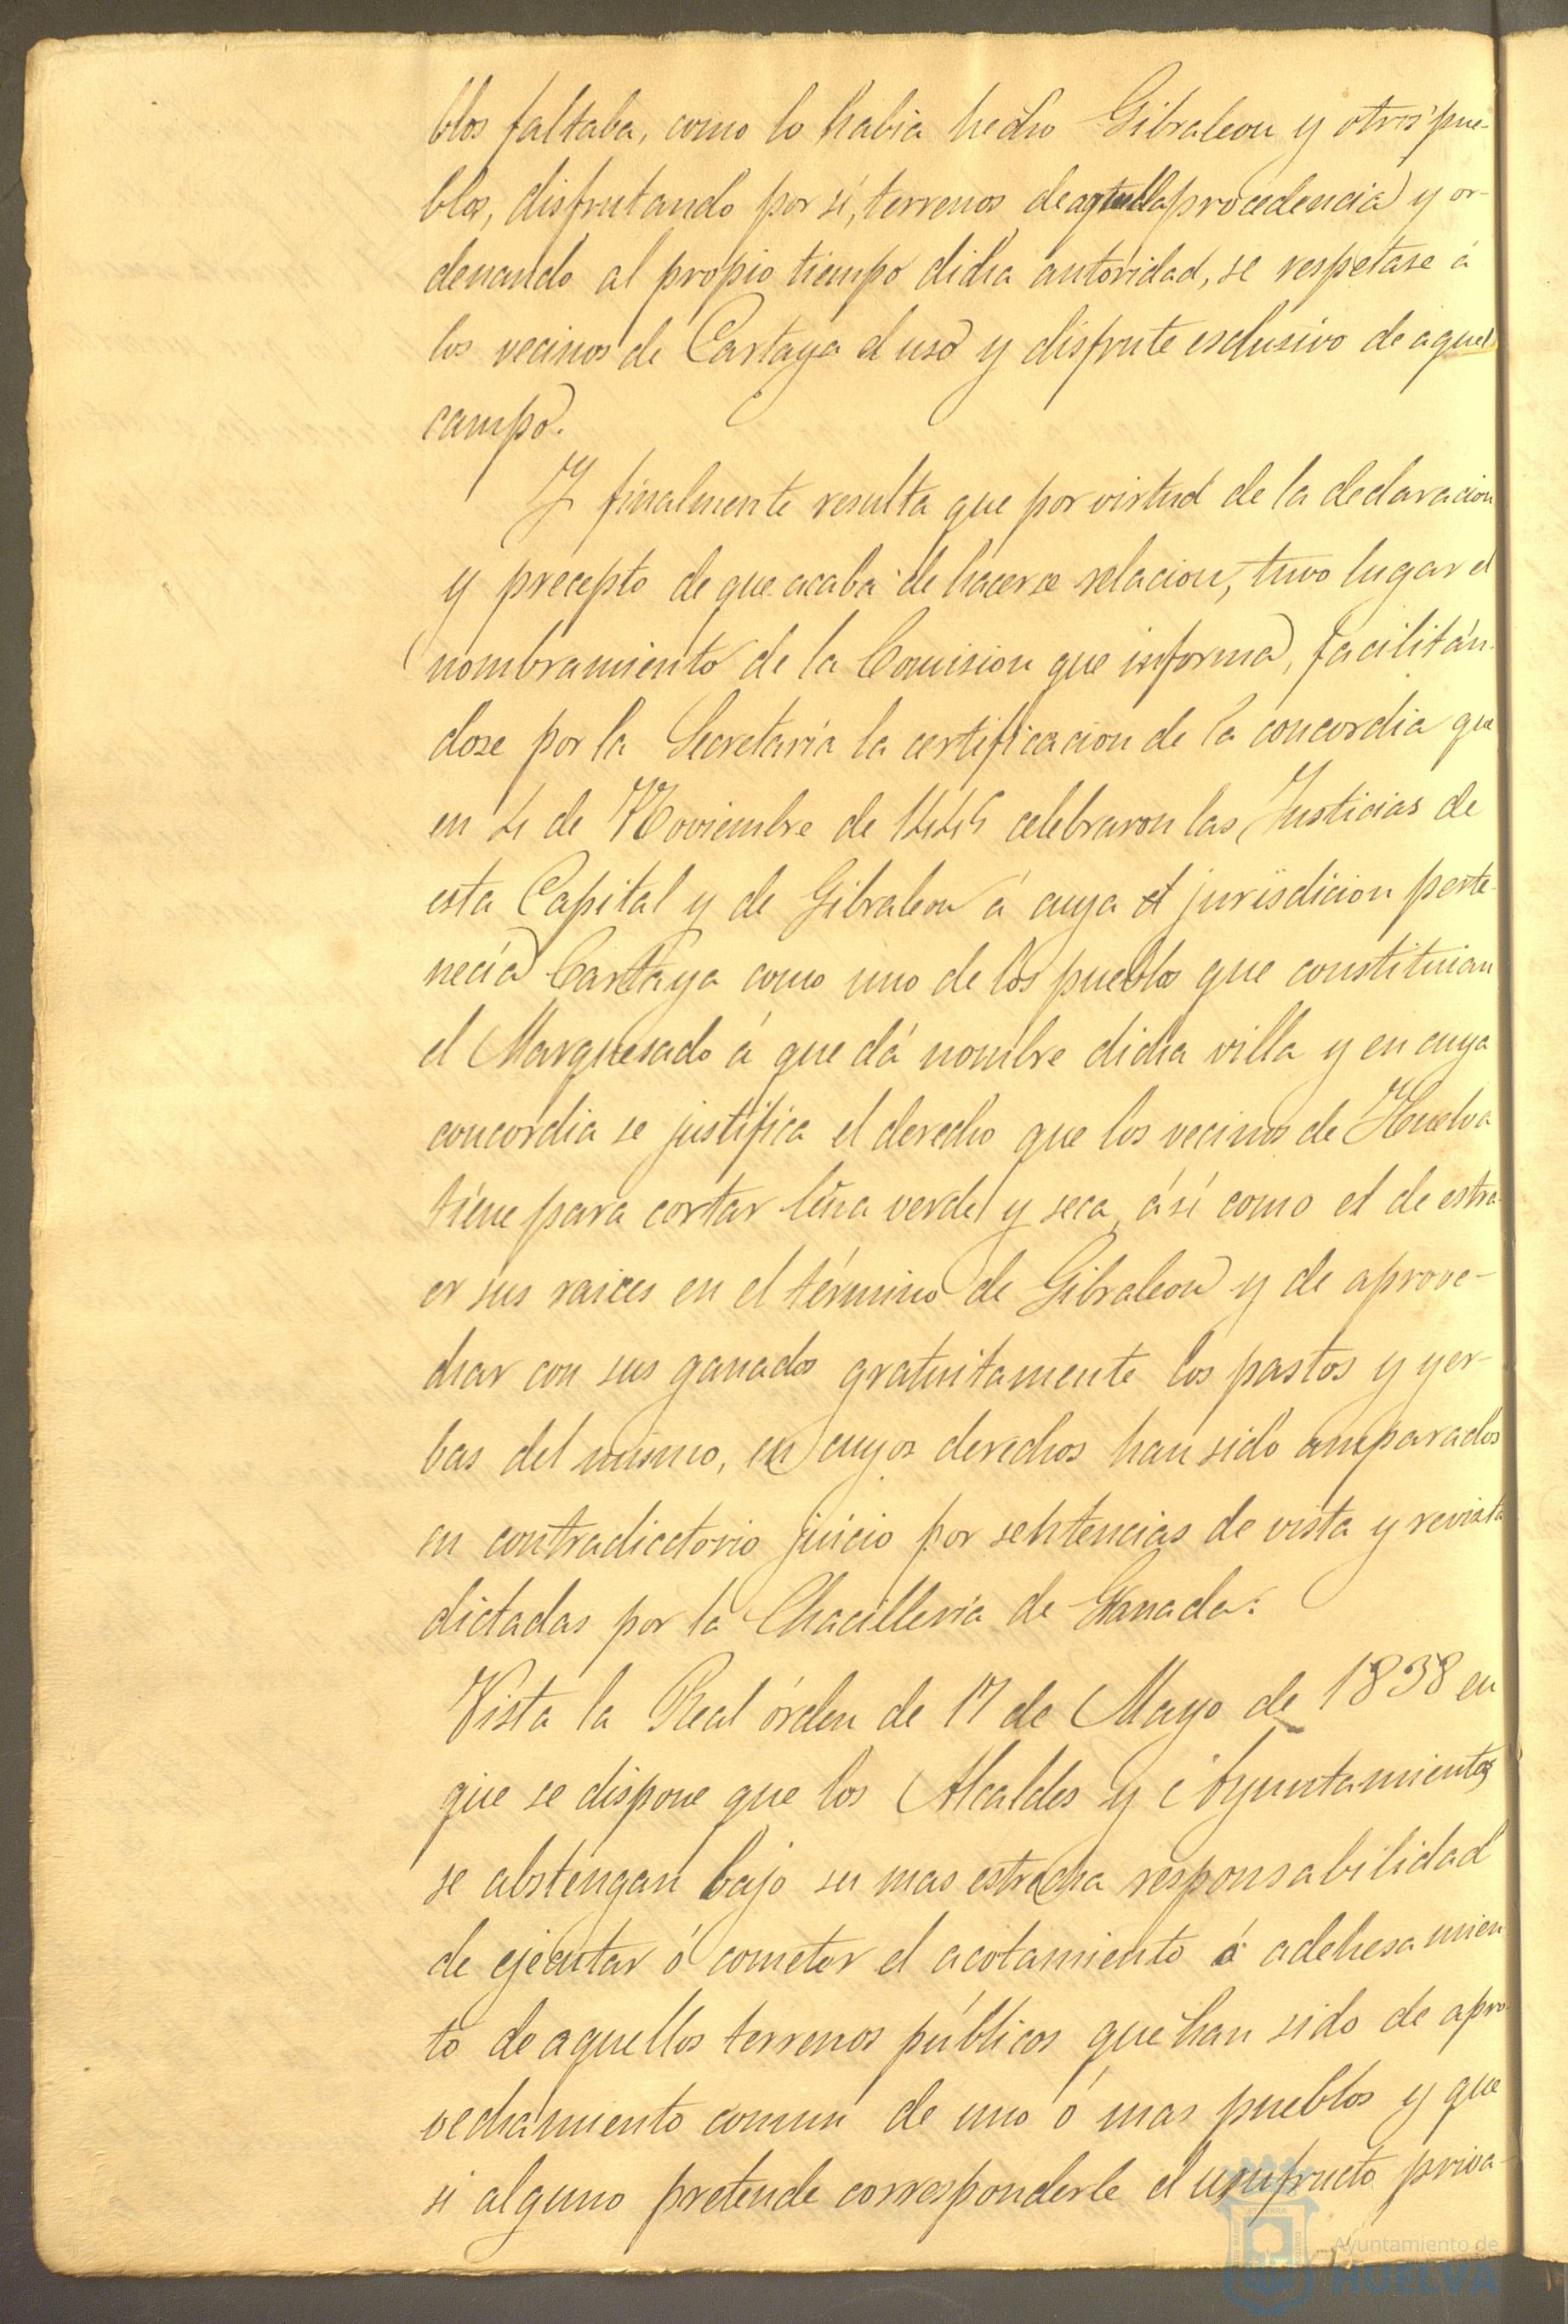 blos faltaba, como lo habia hecho Gibraleon y otros pue-
blos, disfrutando por sí, terrenos de aquella procedencia y or-
denando al propio tiempo dicha autoridad, se respetase á
los vecinos de Cartaya el uso y disfrute esclusivo de aquel
campo.
Y finalmente resulta que por virtud de la declaracion
y precepto de que acaba de hacerse relacion, tuvo lugar el
nombramiento de la Comision que informa, facilitán-
dose por la Secretaría la certificacion de la concordia que
en 4 de Noviembre de 1445 celebraron las Justicias de
esta Capital y de Gibraleon á cuya jurisdicion perte-
necía Cartaya como uno de los pueblos que constituian
el Marquesado á que dá nombre dicha villa y en cuya
concordia se justifica el derecho que los vecinos de Huelva
tiene para cortar leña verde y seca, ási como el de estra-
er sus raices en el término de Gibraleon y de aprove-
char con sus ganados gratuitamente los pastos y yer-
bas del mismo, en cuyos derechos han sido amparados
en contradicctorio juicio por sentencias de vista y revista
dictadas por la Chacilleria de Granada:
Vista la Real órden de 17 de Mayo de 1838 en
que se dispone que los Alcaldes y Ayuntamientos
se abstengan bajo su mas estrecha responsabilidad
de ejecutar ó cometer el acotamiento ó adehesamien
to de aquellos terrenos públicos que han sido de apro-
vechamiento comun de uno ó mas pueblos y que
si alguno pretende corresponderle el usufructo priva-
Ayuntamiento de
HUELVA